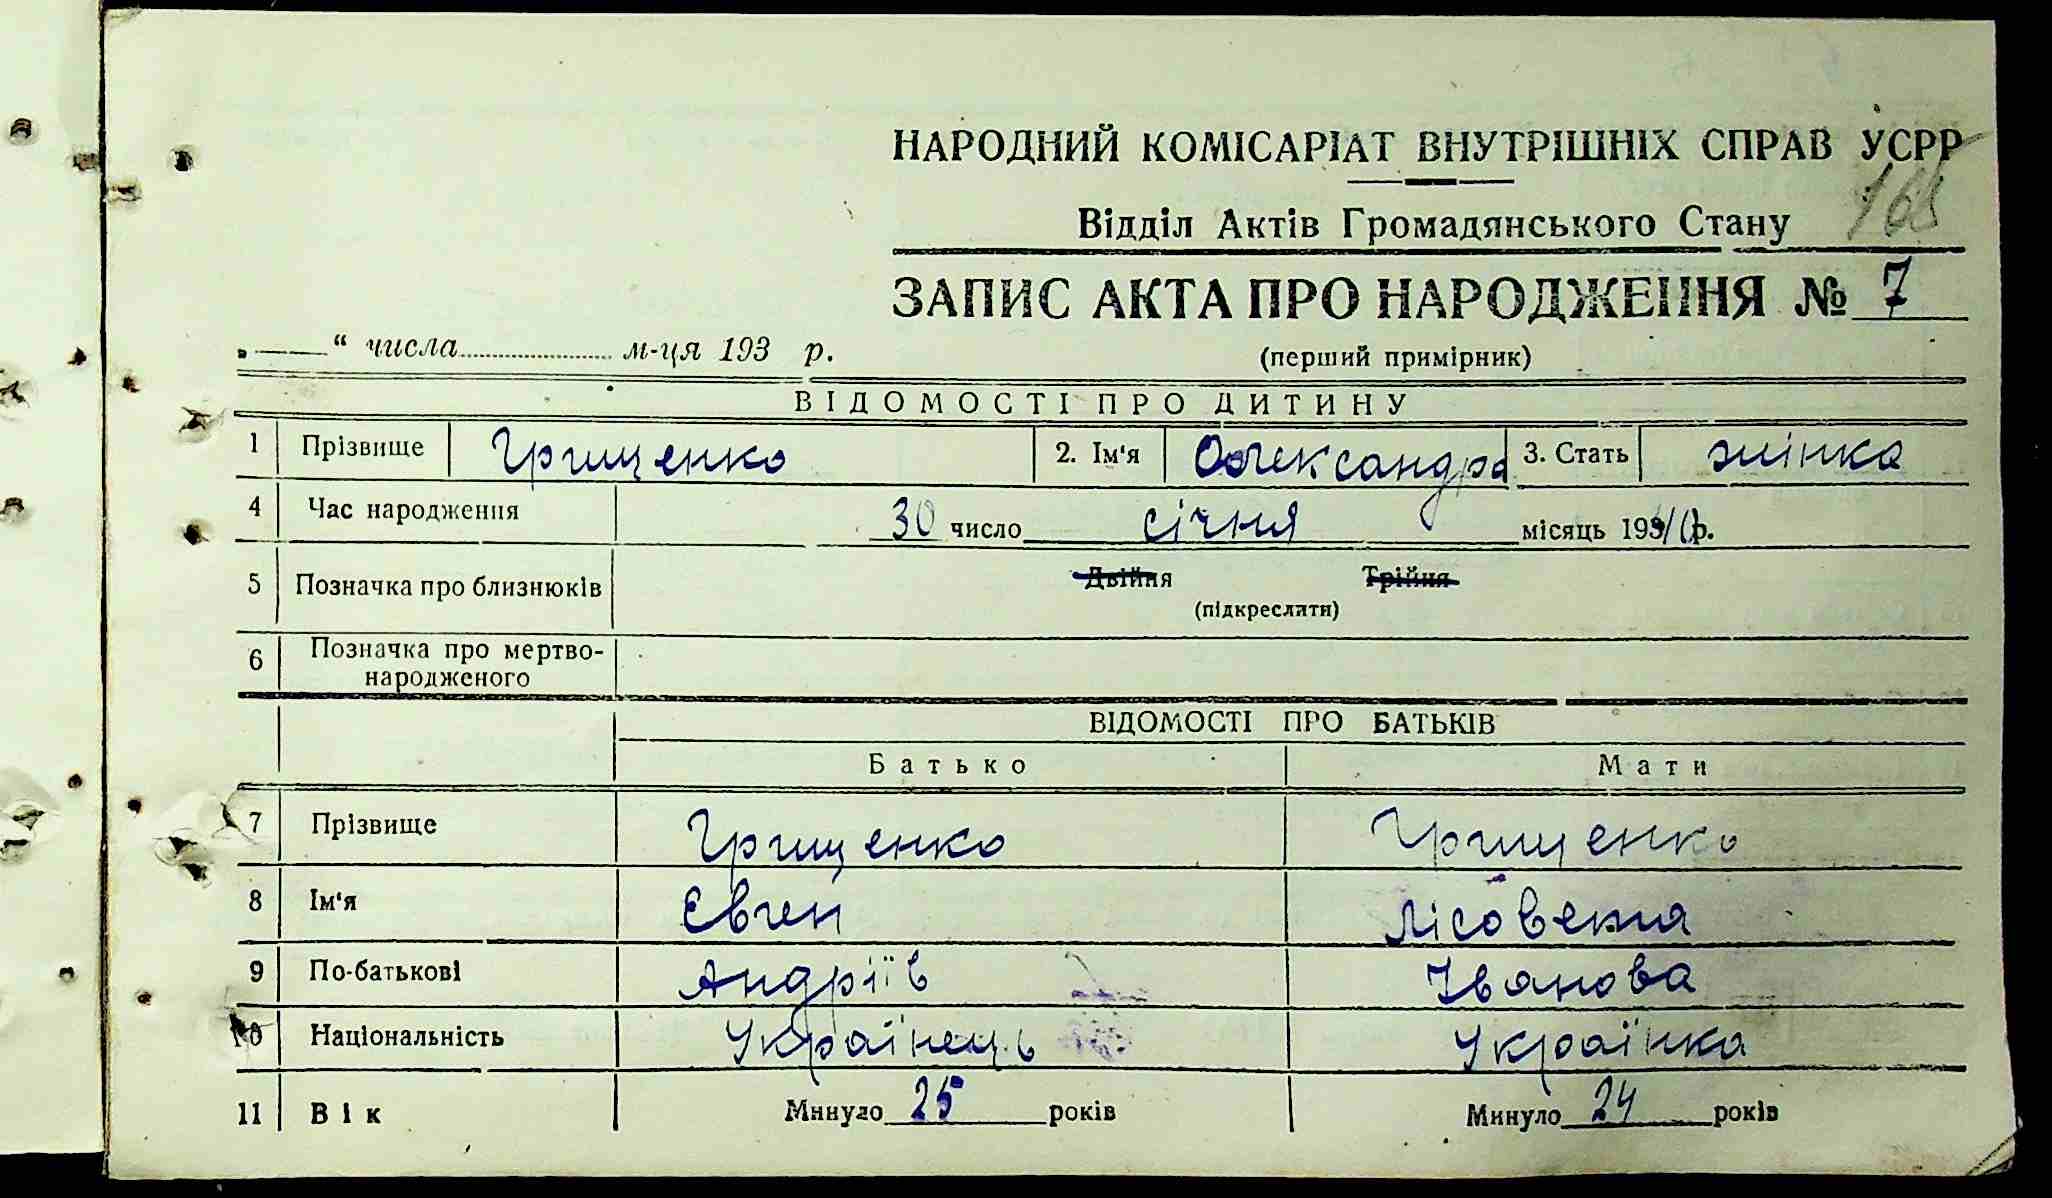 НАРОДНИЙ КОМІСАРІАТ ВНУТРІШНІХ СПРАВ УСРР
168
Відділ Актів Громадянського Стану
ЗАПИС АКТА ПРО НАРОДЖЕННЯ № 7
„ “ числа м-ця 193 р.
(перший примірник)
ВІДОМОСТІ ПРО ДИТИНУ
1 Прізвище Грищенко 2. Ім'я Олександра 3. Стать жінка
4 Час народження 30 число січня місяць р.
5 Позначка про близнюків Двійня Трійня
(підкреслити)
6 Позначка про мертво-
народженого
ВІДОМОСТІ ПРО БАТЬКІВ
Батько Мати
7 Прізвище Грищенко Грищенко
8 Ім'я Євген
9 По-батькові Андріїв Іванова
10 Національність Українець Українка
11 Вік Минуло 25 років Минуло 24 років